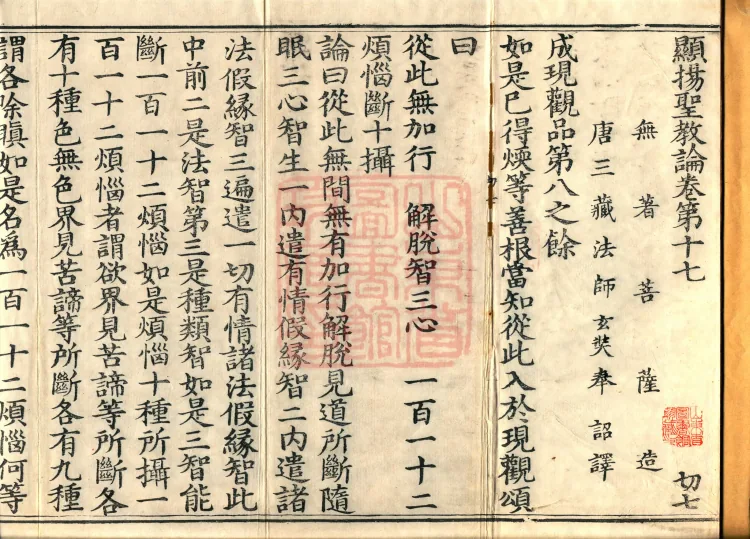 顯揚聖教論卷第十七
切七
無著菩薩造
唐三藏法師玄奘奉詔譯
成現觀品第八之餘
如是已得煗等善根當知從此入於現觀頌
曰
從此無加行 解脫智三心 一百一十二
煩惱斷十攝
論曰從此無間無有加行解脫見道所斷隨
眠三心智生一內遣有情假緣智二內遣諸
法假緣智三遍遣一切有情諸法假緣智此
中前二是法智第三是種類智如是三智能
斷一百一十二煩惱如是煩惱十種所攝一
百一十二煩惱者謂欲界見苦諦等所斷各
有十種色無色界見苦諦等所斷各有九種
謂各除瞋如是名為一百一十二煩惱何等